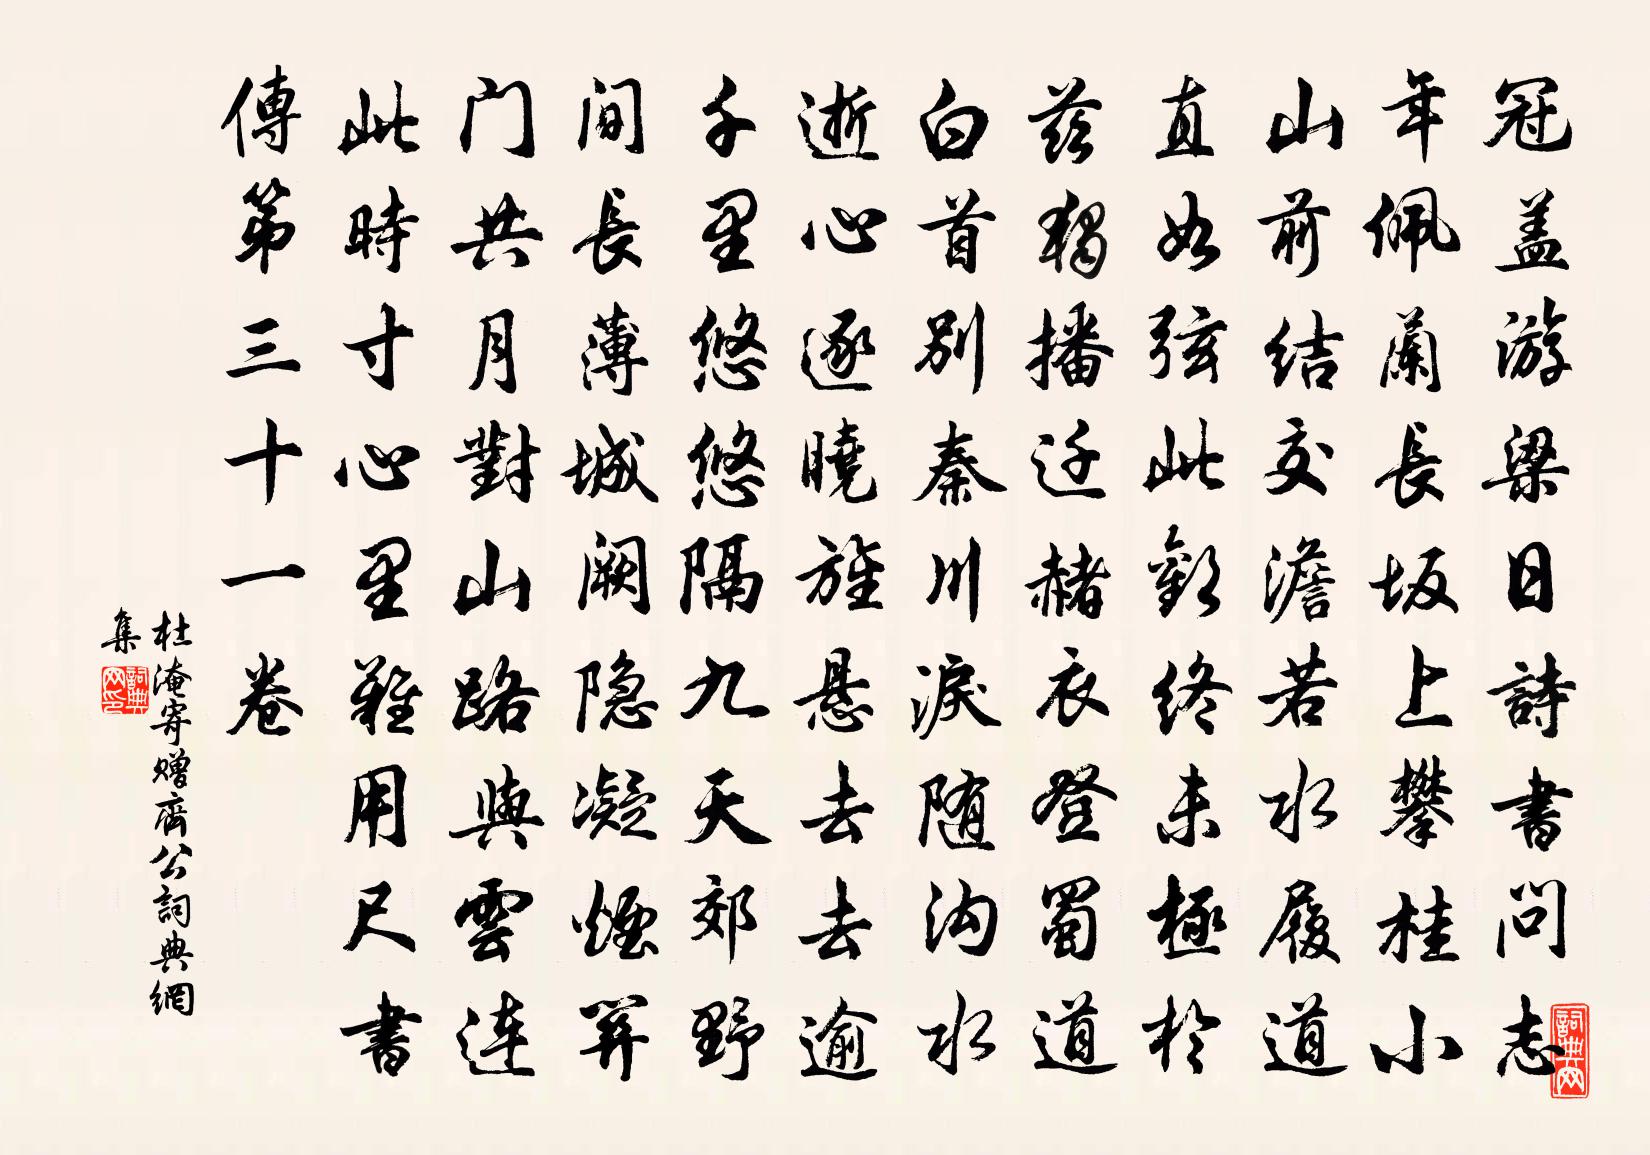 冠盖游梁日詩書問志
年佩蘭長坂上攀桂小
山前結交澹若水履道
直如弦此歡終未極於
茲獨播迁赭衣登蜀道
白首别秦川淚随沟水
逝心逐曉旌悬去去逾
千里悠悠隔九天郊野
间長薄城阙隐凝煙關
门共月對山路與雲連
此時寸心里難用尺書
傳第三十一卷
杜淹寄赠齊公詞典網
集
詞典网
詞典网印